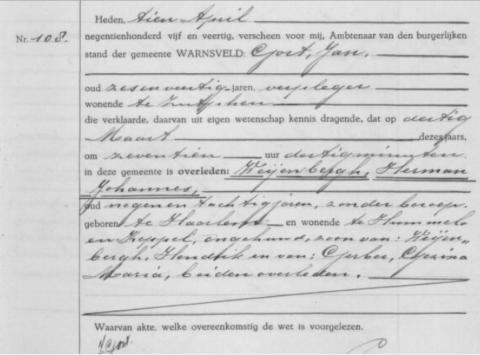 Nr. 108.
Heden, tien April
negentienhonderd vijf en veertig, verscheen voor mij, Ambtenaar van den burgerlijken
stand der gemeente WARNSVELD: Gort, Jan,
oud zesenveertig jaren, verpleger
wonende te Zutphen
die verklaarde, daarvan uit eigen wetenschap kennis dragende, dat op dertig
Maart dezes jaars,
om zeventien uur dertig minuten
in deze gemeente is overleden: Weijenbergh, Herman
Johannes,
oud negenentachtig jaren, zonder beroep
geboren te Haarlem en wonende te Hummelo
en Keppel, ongehuwd, zoon van: Weijen-
bergh, Hendrik en van: Gerber,
Maria, beiden overleden.
Waarvan akte, welke overeenkomstig de wet is voorgelezen.
J Gort.